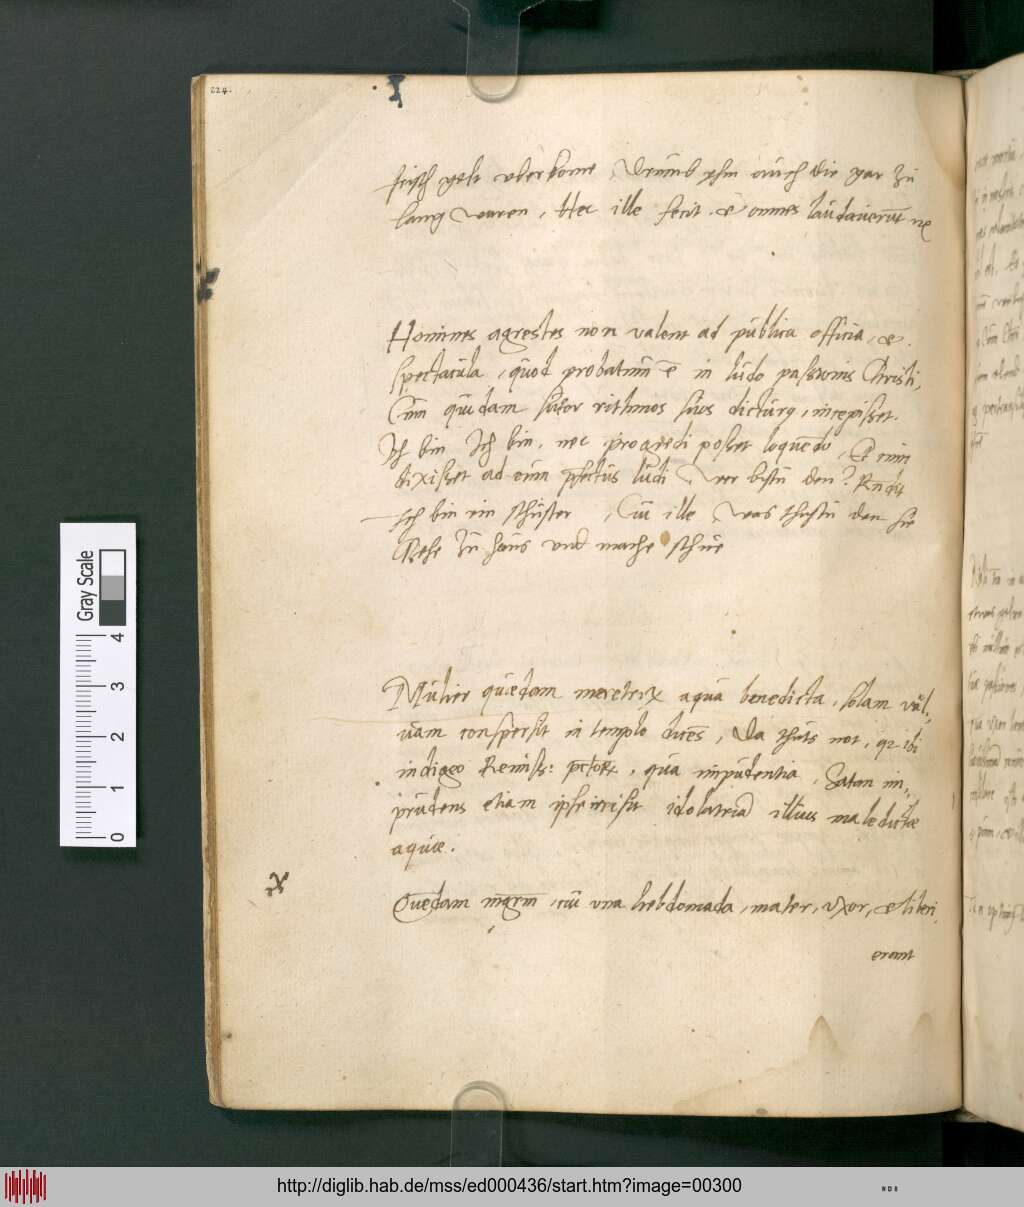 224.
frisch gelt uberkome, Drumb yhm auch die gar zu
lang waren, Hec ille fecit & omnes laudaverūt
Homines agrestes non valent ad publica officia, &
spectacula, quod probatum ē in ludo passionis Christi,
Cum quidam sutor rithmos suos dicturg, incepisset.
Ich bin Ich bin, nec progredi posset loquendo, Et cum
dixisset ad eum pfectus ludi, wer bistu den? Rndit
Ich bin ein schuster, Cui ille, was thustu den hie
Gehe zu haus und mache schue
Mulier quædam meretrix aqua benedicta, solam vul-
vam conspersit in templo dices, Da thuts not, qz ibi
indigeo Remiss: pctorȝ, qua impudentia, Satan im-
prudens etiam ipse irrisit idolatriā illius maledictæ
aquæ.
Quedam mgrm, cui una hebdomada, mater, uxor, & liberi
erant
Gray Scale
4
3
2
1
0
http://diglib.hab.de/mss/ed000436/start.htm?image=00300